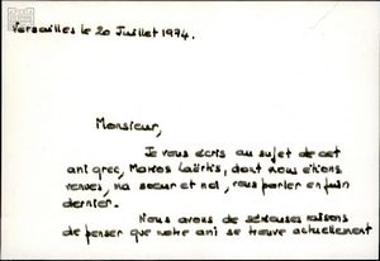 Versailles le 20 Juillet 1974.
Monsieur,
Je vous écris au sujet de cet
ami grec, Marios Laërkis, dont nous étions
venues, ma soeur et moi, vous parler en juin
dernier.
Nous avons de sérieuses raisons
de penser que notre ami se trouve actuellement